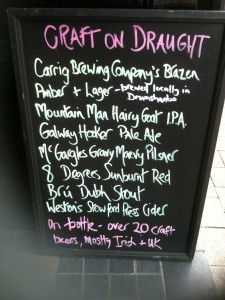 CRAFT ON DRAUGHT
Carrig Brewing Company's Brazen
Amber + Lager - brewed locally in
Drumshanbo
Mountain Man Hairy Goat I.PA
Galway Hooker Pale Ale
McGargles Granny Mary's Pilsner
8 Degrees Sunburnt Red
Brú Dubh Stout
Weston's Stowford Press Cider
On bottle - over 20 craft
beers, mostly Irish + UK